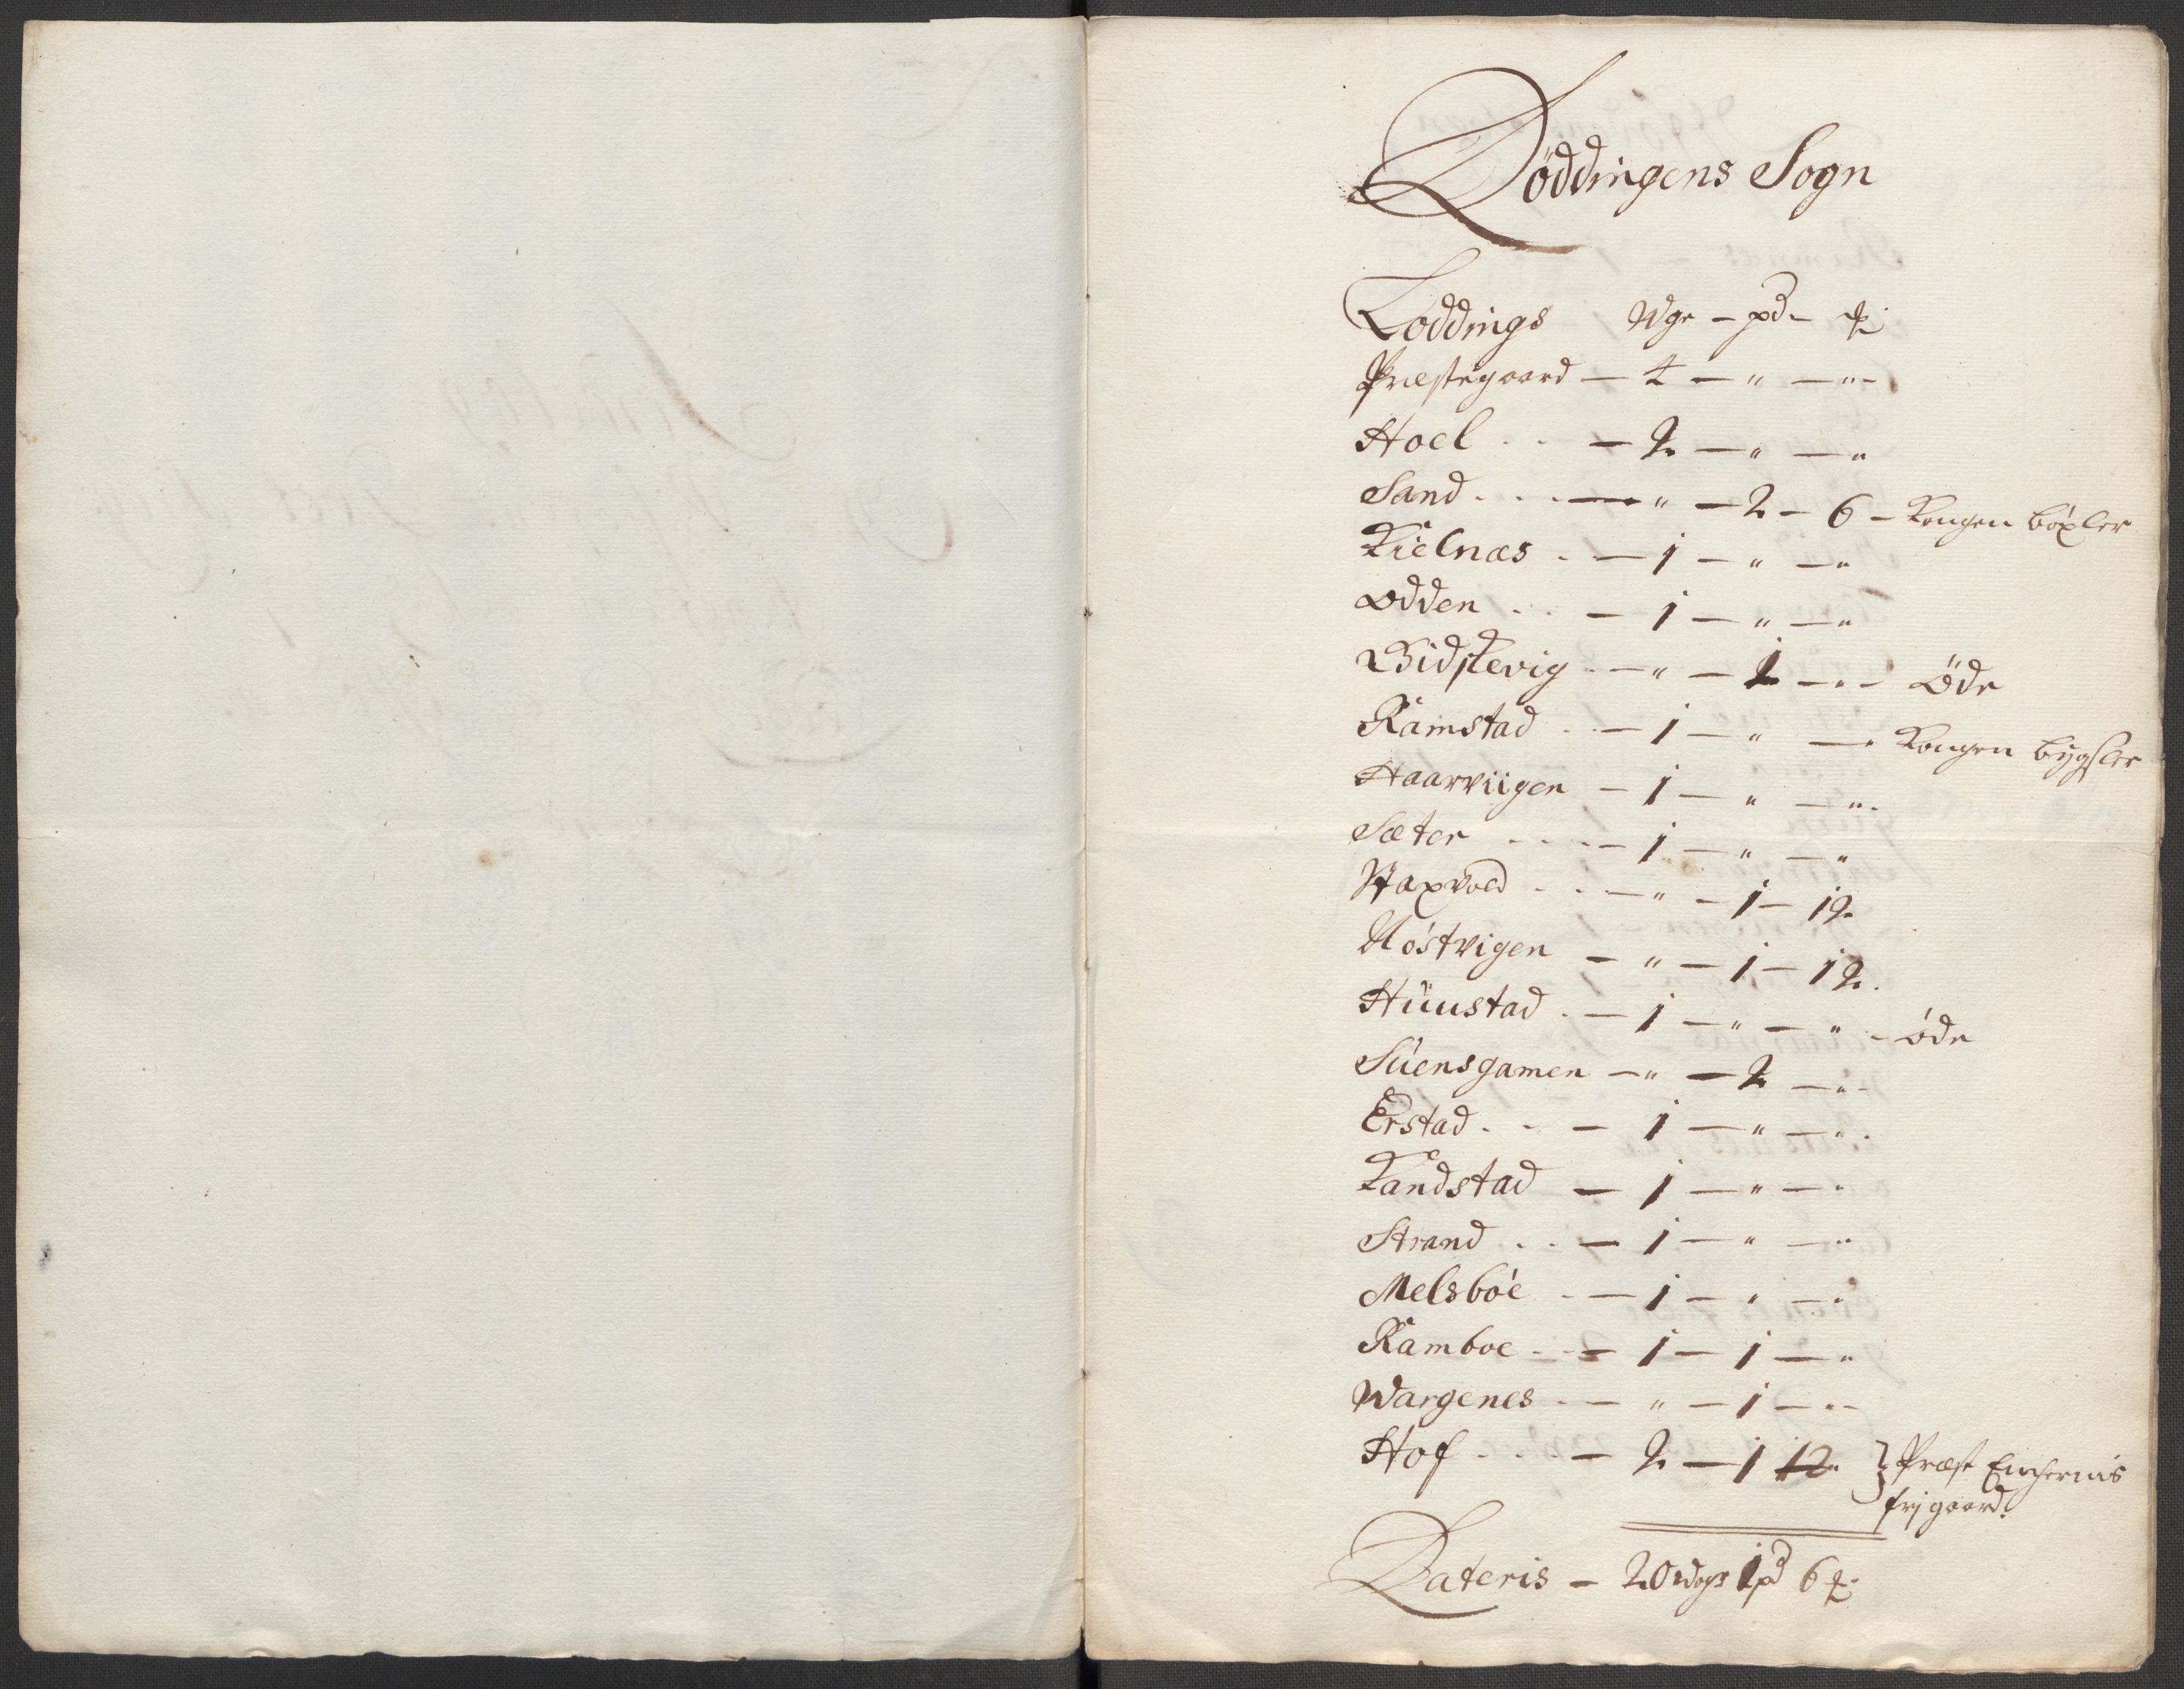 Löddingens Sogn
Loddings Wge - pd - ℔
Præstegaard - 4 - " - " -
Hoel . . - 2 - " - "
Sand . . . - " - 2 - 6 - Kongen böxler
Kielnæs . - 1 - " - "
Odden . . - 1 - " - "
Widstevig . - " - 1 - " - Öde
Ramstad . . - 1 - " - " Kongen bygsler
Haarviigen - 1 - " - " -
Sæter . . . . - 1 - " - "
Staxvold . . - " - 1 - 12
Nöstvigen - " - 1 - 12 .
Huustad . - 1 - " - " - öde
Suensgamen - " - 2 - " -
Erstad . . - 1 - " - " .
Kandstad - 1 - " - "
Strand . . - 1 - " - "
Melsböe . - 1 - " - "
Ramboe . . - 1 - 1 - "
Wargenes . - " - 1 - " -
Hof . . . - 2 - 1 12 } Præst
frj gaard.
Lateris - 20 woge 1 pd 6 ℔